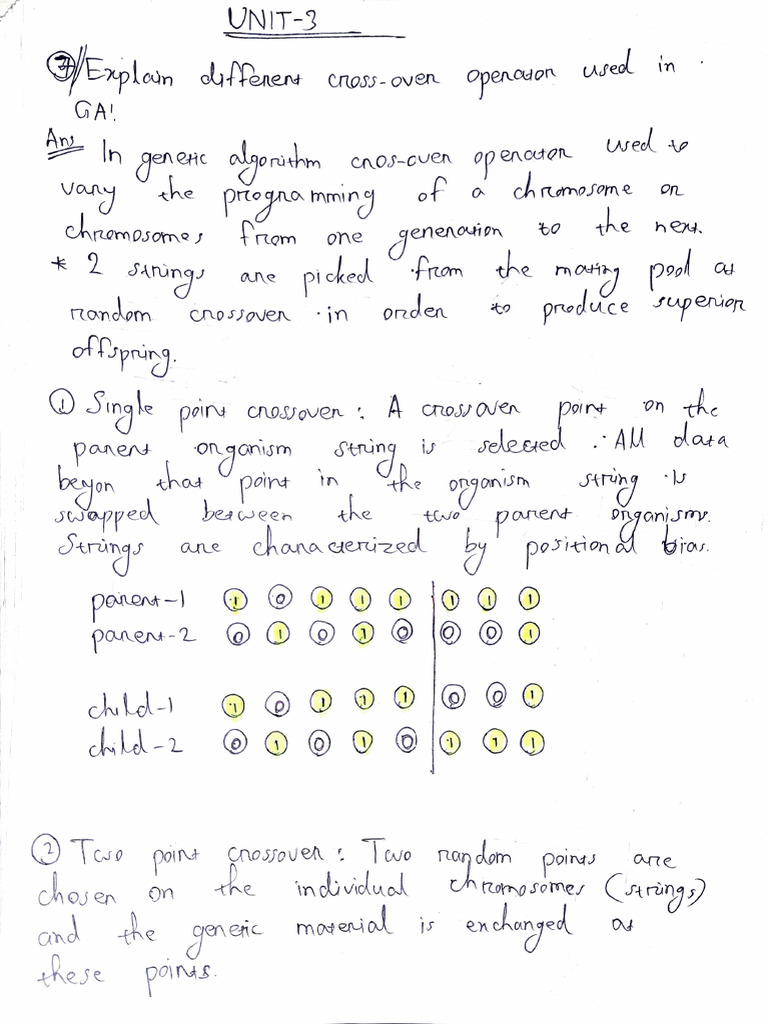 UNIT-3
7 Explain different cross-over operator used in
GA!
Ans In genetic algorithm cros-over operator used to
vary the programming of a chromosome or
chromosomes from one generation to the next.
* 2 strings are picked from the mating pool at
random crossover in order to produce superior
offspring.
① Single point crossover : A crossover point on the
parent organism string is selected. All data
beyon that point in the organism string is
swapped between the two parent organisms.
Strings are characterized by positional bias.
parent-1 1 0 1 1 1 1 1 1
parent-2 0 1 0 1 0 0 0 1
child-1 1 0 1 1 1 0 0 1
child-2 0 1 0 1 0 1 1 1
② Two point crossover : Two random points are
chosen on the individual chromosomes (strings)
and the genetic material is exchanged at
these points.